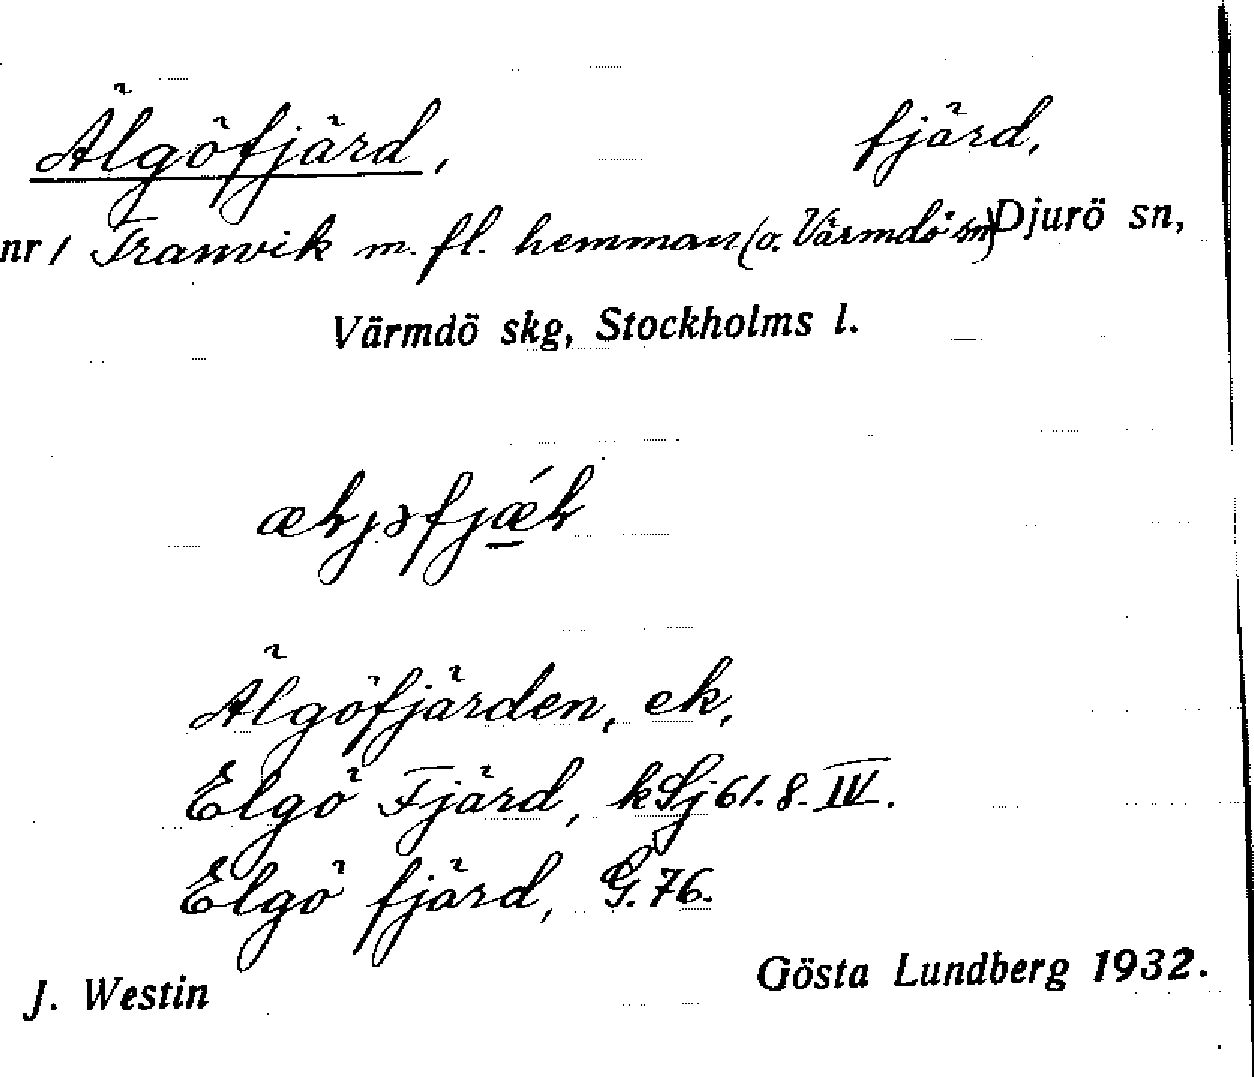 Älgöfjärd, fjärd,
nr 1 Tranvik m. fl. hemman (o. Värmdö sn) Djurö sn,
Värmdö skg, Stockholms l.
Älgöfjärden, ek,
Elgö Fjärd, kSj 61. 8. IV.
Elgö fjärd, G. 76.
J. Westin Gösta Lundberg 1932.